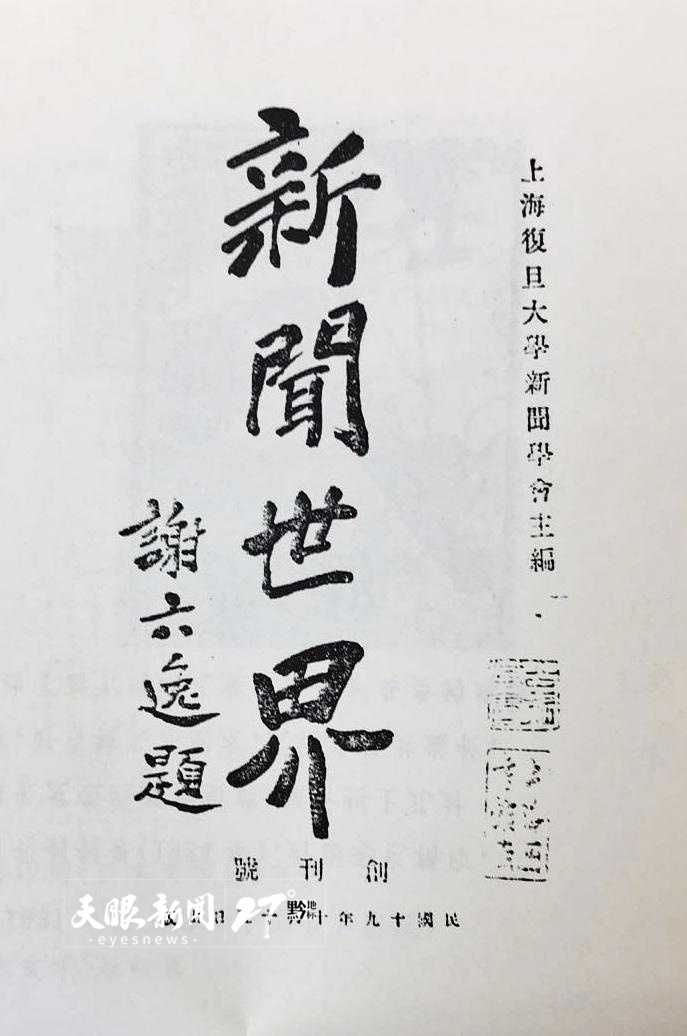 上海復旦大學新聞學會主編
新聞世界
謝六逸題
創刊號
民國十九年十
天眼新闻 27°
黔地标
·eyesnews·